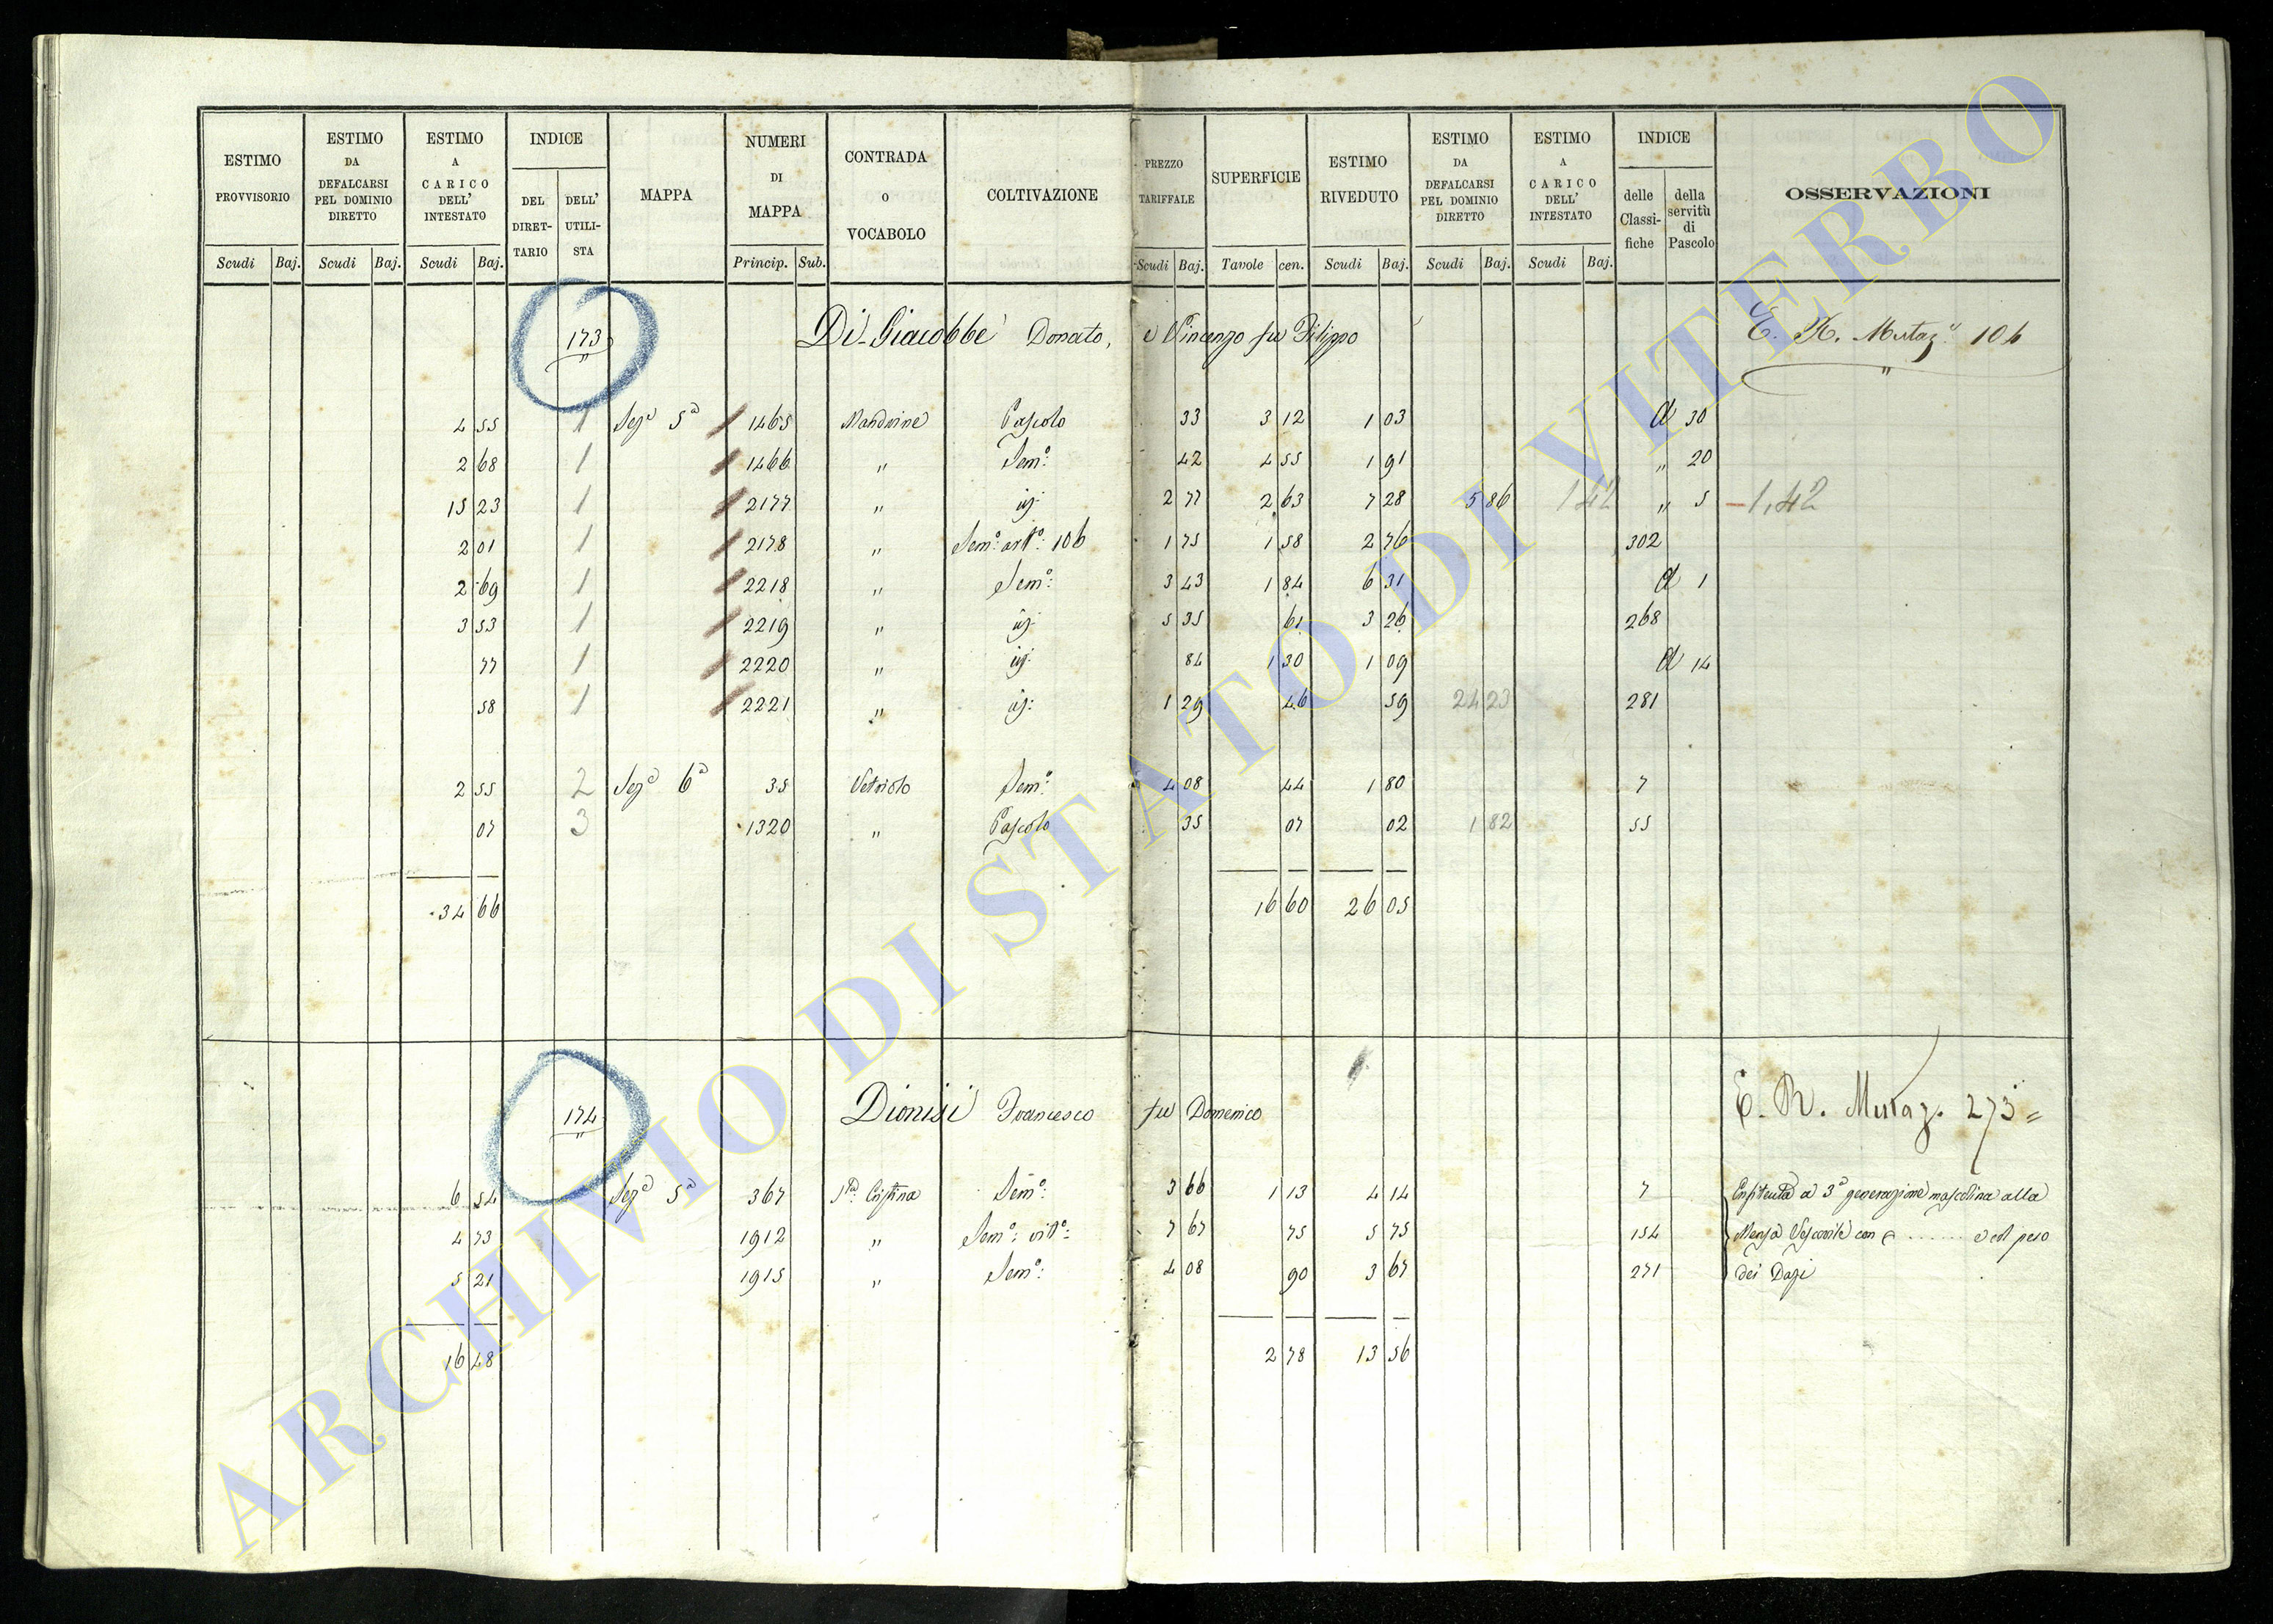 ESTIMO PROVVISORIO | ESTIMO DA DEFALCARSI PEL DOMINIO DIRETTO | ESTIMO A CARICO DELL' INTESTATO | INDICE DEL DIRETTARIO | DELL' UTILISTA | MAPPA | NUMERI DI MAPPA | CONTRADA O VOCABOLO | COLTIVAZIONE | PREZZO TARIFFALE | SUPERFICIE | ESTIMO RIVEDUTO | ESTIMO DA DEFALCARSI PEL DOMINIO DIRETTO | ESTIMO A CARICO DELL' INTESTATO | INDICE delle Classifiche | della servitù di Pascolo | OSSERVAZIONI
Scudi Baj. Scudi Baj. Scudi Baj. Princip. Sub. Scudi Baj. Tavole cen. Scudi Baj. Scudi Baj. Scudi Baj.
173 Di-Giacobbe Donato, e Vincenzo fu Filippo E. R. Mutaz. 106
4 55 1 Sez.a 5a 1465 Pascolo 33 3 12 1 03 a 30
2 68 1 1466 " Sem.o: 42 4 55 1 91 " 20
15 23 1 2177 " 2 77 2 63 7 28 5 86 1 42 " 5 -1,42
2 01 1 2178 " Sem.o: art.o: 106 1 75 1 58 2 76 302
2 69 1 2218 " Sem.o: 3 43 1 84 6 31 a 1
3 53 1 2219 " 5 35 61 3 26 268
77 1 2220 " 84 1 30 1 09 a 14
58 1 2221 " 1 29 46 59 24 23 281
2 55 2 Sez.a 6a 35 Vetriolo Sem.o: 4 08 44 1 80 7
07 3 1320 " Pascolo 35 07 02 1 82 55
34 66 16 60 26 05
174 Dionisi Francesco fu Domenico E. R. Mutaz. 273=
6 54 Sez.a 5a 367 S.ta Cristina Sem.o: 3 66 1 13 4 14 7 Enfiteuta a 3a generazione mascolina alla
4 73 1912 " Sem.o: vit.o: 7 67 75 5 75 154 Mensa Vescovile con ...... e col peso
5 21 1915 " Sem.o: 4 08 90 3 67 271 dei Dazi
16 48 2 78 13 56
ARCHIVIO DI STATO DI VITERBO